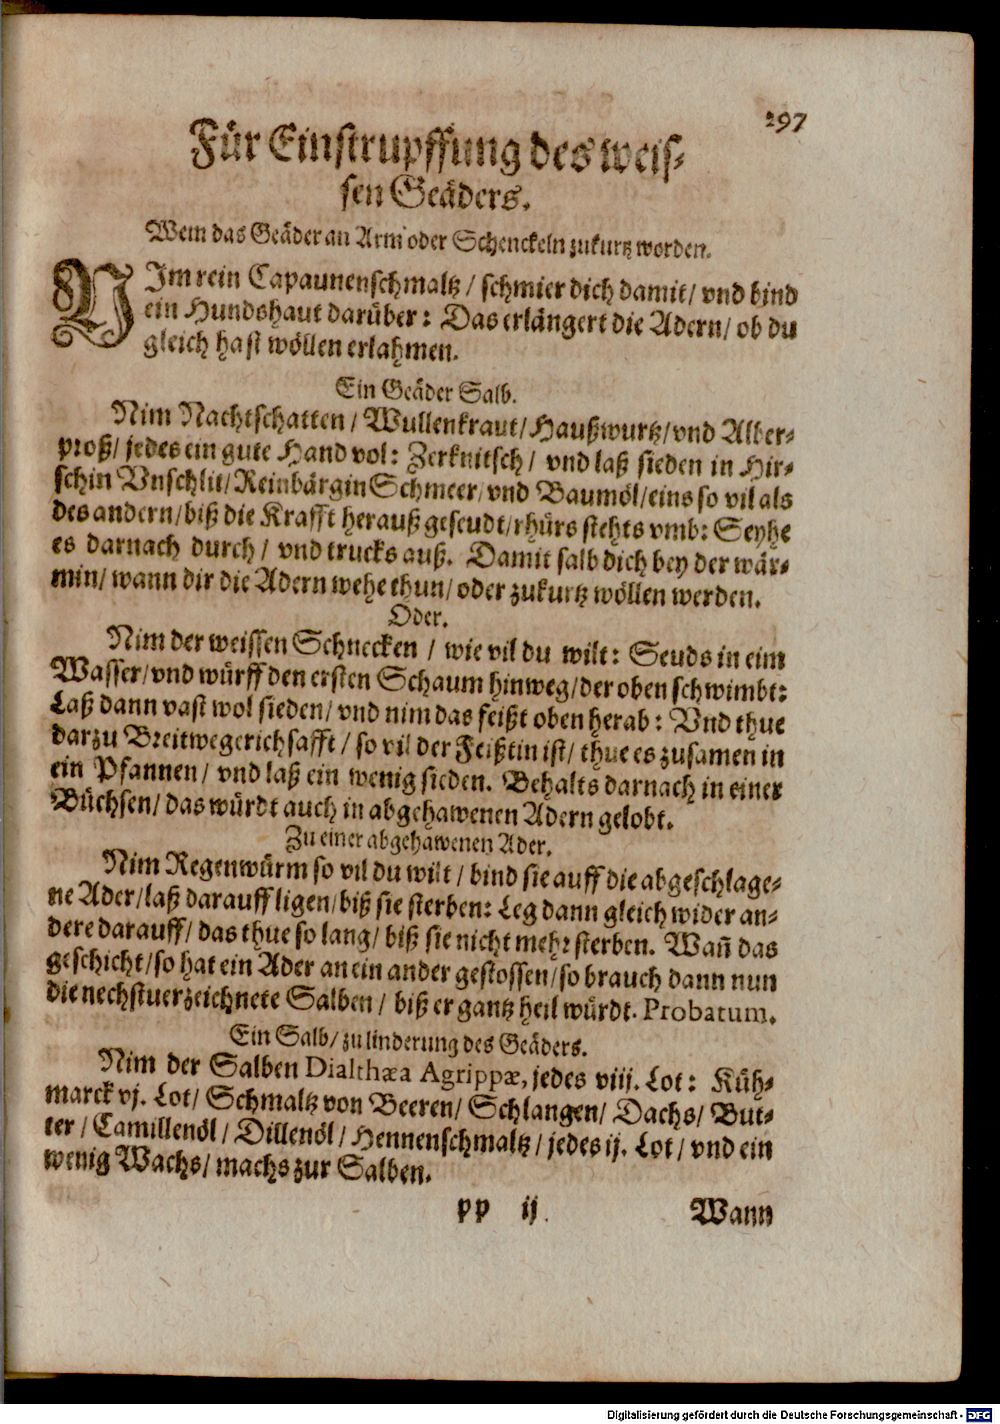 297
Für Einstrupffung des weis-
sen Geäders.
Wem das Geäder an Arm oder Schenckeln zukurtz worden.
NIm rein Capaunenschmaltz / schmier dich damit / vnd bind
ein Hundshaut darüber: Das erlängert die Adern / ob du
gleich hast wöllen erlahmen.
Ein Geäder Salb.
Nim Nachtschatten / Wullenkraut / Haußwurtz / vnd Alber-
proß / jedes ein gute Hand vol: Zerknitsch / vnd laß sieden in Hir-
schin Vnschlit / Reinbärgin Schmeer / vnd Baumöl / eins so vil als
des andern / biß die Krafft herauß geseudt / rhürs stehts vmb: Seyhe
es darnach durch / vnd trucks auß. Damit salb dich bey der wär-
min / wann dir die Adern wehe thun / oder zukurtz wöllen werden.
Oder.
Nim der weissen Schnecken / wie vil du wilt: Seuds in eim
Wasser / vnd würff den ersten Schaum hinweg / der oben schwimbt:
Laß dann vast wol sieden / vnd nim das feißt oben herab: Vnd thue
darzu Breitwegerichsafft / so vil der Feißtin ist / thue es zusamen in
ein Pfannen / vnd laß ein wenig sieden. Behalts darnach in einer
Büchsen / das würdt auch in abgehawenen Adern gelobt.
Zu einer abgehawenen Ader.
Nim Regenwürm so vil du wilt / bind sie auff die abgeschlage-
ne Ader / laß darauff ligen / biß sie sterben: Leg dann gleich wider an-
dere darauff / das thue so lang / biß sie nicht mehr sterben. Wañ das
geschicht / so hat ein Ader an ein ander gestossen / so brauch dann nun
die nechstuerzeichnete Salben / biß er gantz heil würdt. Probatum.
Ein Salb / zu linderung des Geäders.
Nim der Salben Dialthæa Agrippæ, jedes viij. Lot: Küh-
marck vj. Lot / Schmaltz von Beeren / Schlangen / Dachs / But-
ter / Camillenöl / Dillenöl / Hennenschmaltz / jedes ij. Lot / vnd ein
wenig Wachs / machs zur Salben.
pp ij
Wann
Digitalisierung gefördert durch die Deutsche Forschungsgemeinschaft - DFG